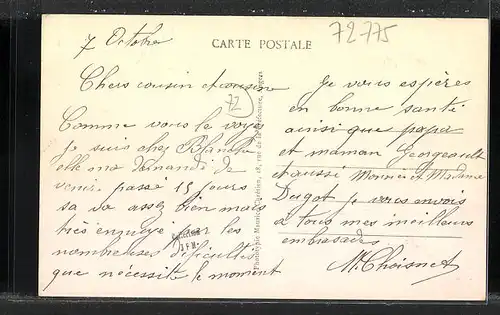 7 Octobre
CARTE POSTALE
72775
72
Chers cousin et cousine
Comme vous le voyez
je suis chez Blanche
elle ma demandé de
venir passé 15 jours
sa va assez bien mais
très ennuyé par les
nombreuses dificultés
que nécessite le moment
je vous espères
en bonne santé
ainsi que papa
et maman Georgeault
et aussi Monsieur et Madame
Dugot je vous envois
à tous mes meilleurs
embrassades
M. Choisnet
Phototypie